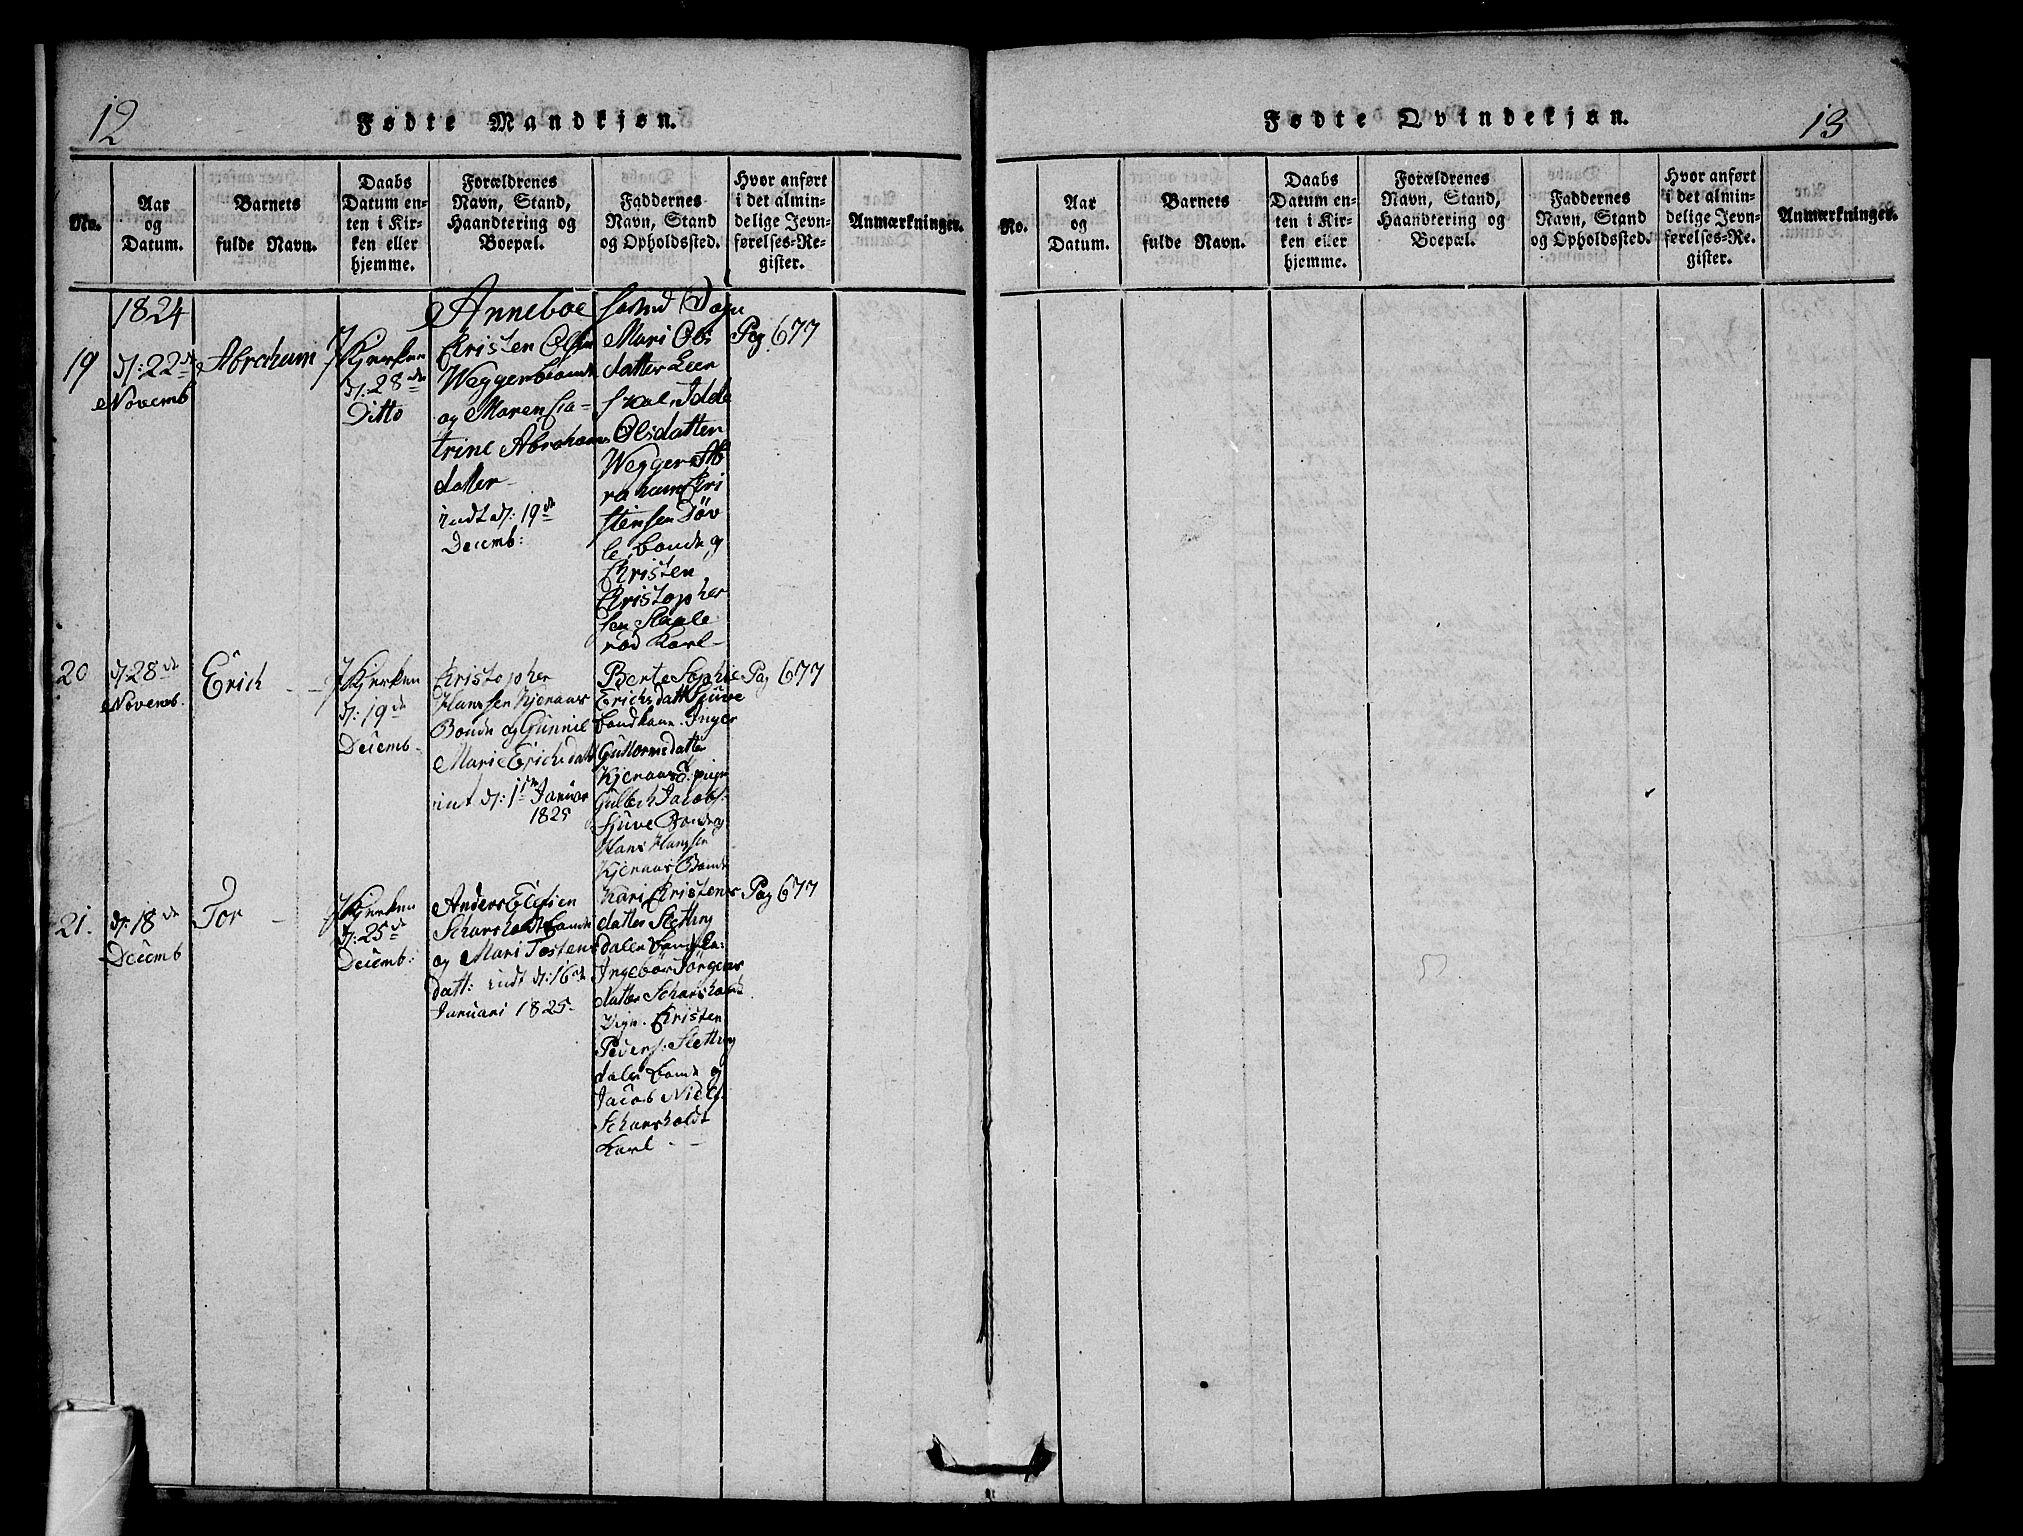 12
Fødte Mandkjøn.
No.
Aar
og
Datum.
Barnets
fulde Navn.
Daabs
Datum en-
ten i Kir-
ken eller
hjemme.
Forældrenes
Navn, Stand,
Haandtering og
Boepæl.
Faddernes
Navn, Stand
og Opholdssted.
Hvor anført
i det almin-
delige Jevn-
førelses-Re-
gister.
Anmærkninger.
Anneboe Sogn
1824
19
d: 22de
Novemb
Abraham
I Kjerken
d: 28de
Ditto
Christen Olsen
Wegger bonde
og Maren Ca-
trine Abrahams
datter
indt d: 19de
Decemb:
Mari Ols
datter
Olsdatter
Wegger Ab
raham Chri
stensen Døv
le, bonde og
Christen
Christopher
sen Staale
rød Karl
Pag 677
20
d: 28de
Novemb.
Erich
I Kjerken
d: 19de
Decemb
Christopher
Hanssen Kjeraas
Bonde og Gunnil
Mari Erichsdatt
int d: 1ste Januar
1825
Berte Sophie
Erichsdatt Sjuve
bondkone. Inger
Guttormsdatter
Kjeraas pige
Gulbich Jacobs.
Sjuve Bonde og
Hans Hanssen
Kjeraas Bonde
Pag 677
21.
d: 18de
Decemb
Tor
I Kjerken
d: 25de
Decemb:
Anders
Scharsholdt Bonde
og Mari Tostens
datt: indt d: 16de
Januari 1825
Kari Christens
datter Sletting
dalen
Ingebor Jørgens
datter Scharsholdt
Pige. Christen
Peders: Sletting
dalen Bonde og
Jacob Niels.
Scharsholdt
Karl
Pag 677
13
Fødte Qvindekjøn.
No.
Aar
og
Datum.
Barnets
fulde Navn.
Daabs
Datum en-
ten i Kir-
ken eller
hjemme.
Forældrenes
Navn, Stand,
Haandtering og
Boepæl.
Faddernes
Navn, Stand
og Opholdssted.
Hvor anført
i det almin-
delige Jevn-
førelses-Re-
gister.
Anmærkninger.